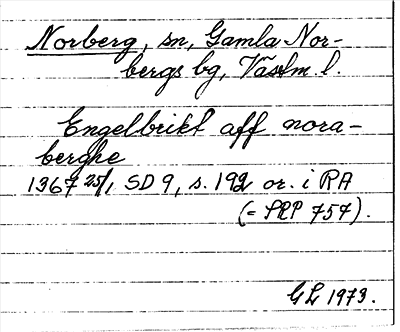 Norberg, sn, Gamla Nor-
bergs bg, Västm. l.
Engelbrikt aff nora-
berghe
1367 25/1 SD 9, s. 192 or. i RA
(= SRP 757).
GL 1973.